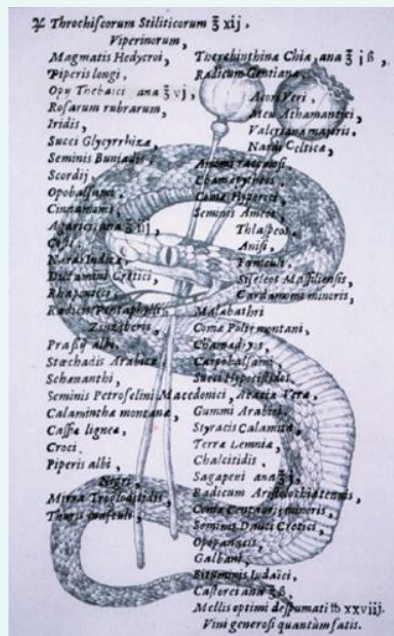 ℞ Throchiscorum Stiliticorum ℥ xij,
Viperinorum,
Magmatis Hedycroi,
Piperis longi,
Opij Thebaici ana ℥ vj,
Rosarum rubrarum,
Iridis,
Succi Glycyrrhizæ,
Seminis Buniadis,
Scordij,
Opobalsami,
Cinnamomi,
Agarici, ana ℥ iij,
Costi,
Nardi Indicæ,
Dictamini Cretici,
Rhapontici,
Radicis Pentaphylli,
Zinziberis,
Prasij albi,
Stœchadis Arabicæ
Schœnanthi,
Seminis Petroselini Macedonici,
Calaminthæ montanæ,
Cassiæ ligneæ,
Croci,
Piperis albi,
Nigri,
Mirræ Trogloditidis,
Thuris masculi,
Therebinthinæ Chiæ, ana ℥ j ß,
Radicum Gentianæ,
Acori Veri,
Meu Athamantici,
Valerianæ majoris,
Nardi Celticæ,
Amomi racemosi,
Chamæpytheos,
Comæ Hyperici,
Seminis Ameos,
Thlaspeos,
Anisi,
Fœniculi,
Siseleos Massiliensis,
Cardamomi minoris,
Malabathri
Comæ Polij montani,
Chamædryos,
Carpobalsami
Succi Hypocistidos
Acaciæ Veræ,
Gummi Arabici,
Styracis Calamitæ,
Terræ Lemniæ,
Chalcitidis,
Sagapeni ana ℥ j,
Radicum Aristolochiæ tenuis,
Comæ Centaurij minoris,
Seminis Dauci Cretici,
Opopanacis,
Galbani,
Bituminis Iudaici,
Castorei ana ℥ ß,
Mellis optimi despumati ℔ xxviij.
Vini generosi quantùm satis.